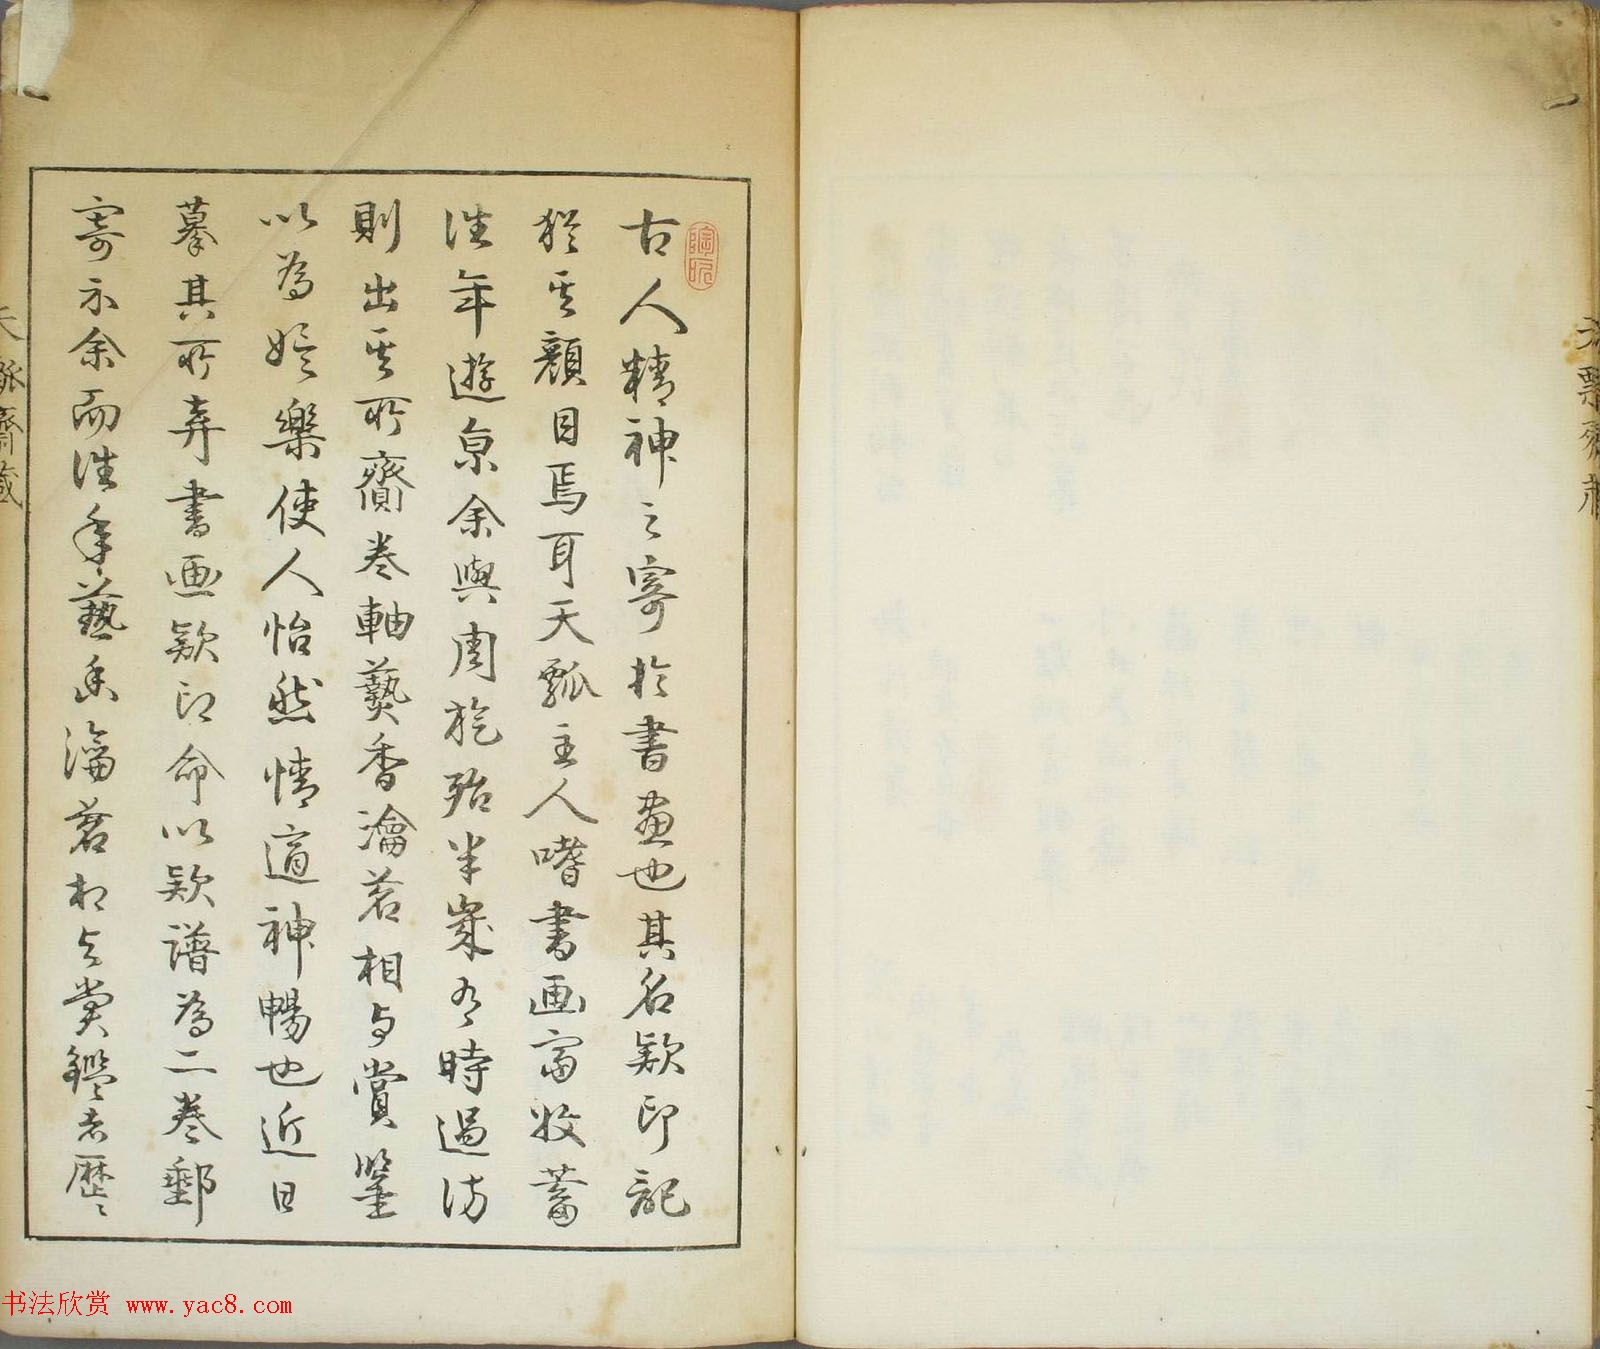 古人精神之寄於書畫也其名欵印記
猶其顔目焉耳天瓢主人嗜書画富收蓄
往年遊京余與周旋殆半歲有時過訪
則出其所齎卷軸爇香瀹茗相与賞鑒
以為娯樂使人怡然情適神暢也近日
摹其所弆書画欵印命以欵譜為二卷郵
寄示余而往年爇香瀹茗相与賞鑑者歷〻
書法欣赏 www.yac8.com